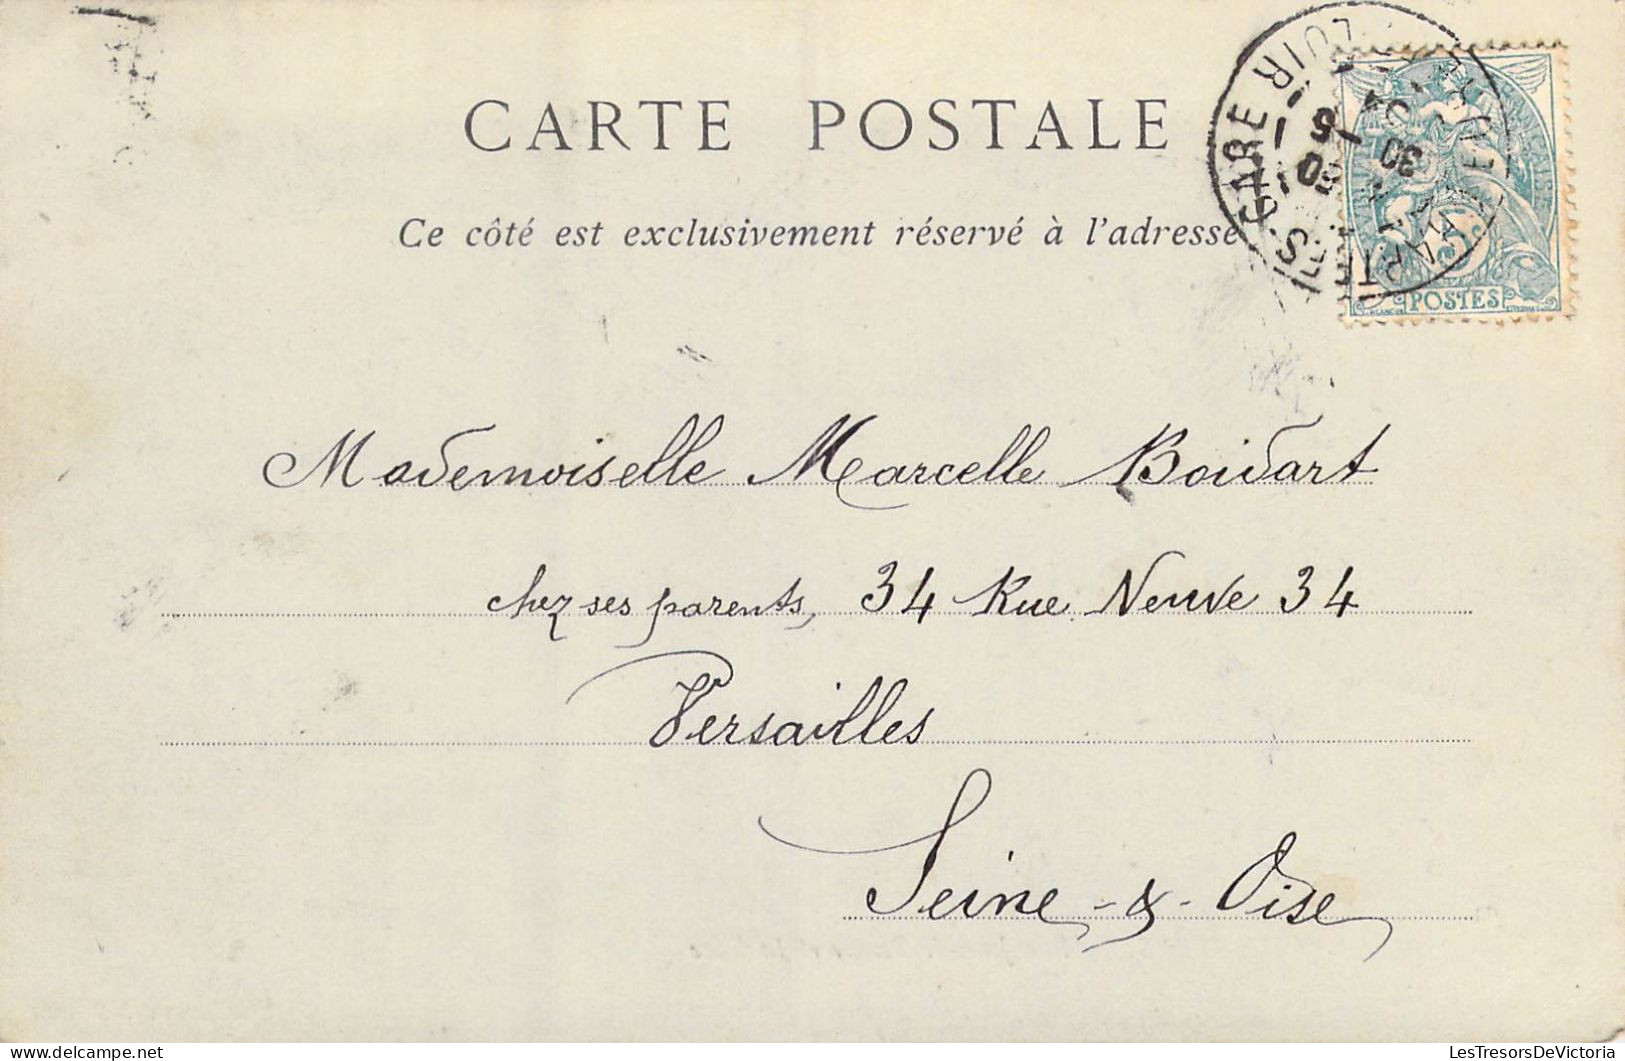 CARTE POSTALE
Ce côté est exclusivement réservé à l'adresse
GARE
LOIR
POSTES
Mademoiselle Marcelle Boidart
chez ses parents, 34 Rue Neuve 34
Versailles
Seine-&-Oise
LesTresorsDeVictoria